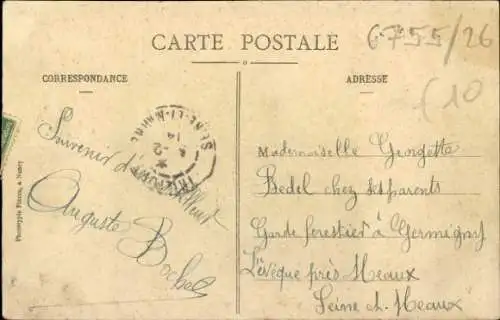 CARTE POSTALE
6755/26
CORRESPONDANCE
ADRESSE
(10
SEINE-ET-MARNE
14
Souvenir d'
Auguste
Mademoiselle Georgetta
Bedel chez ses parents
Garde forestier à Germigny
L'évêque près Meaux
Seine et Meaux